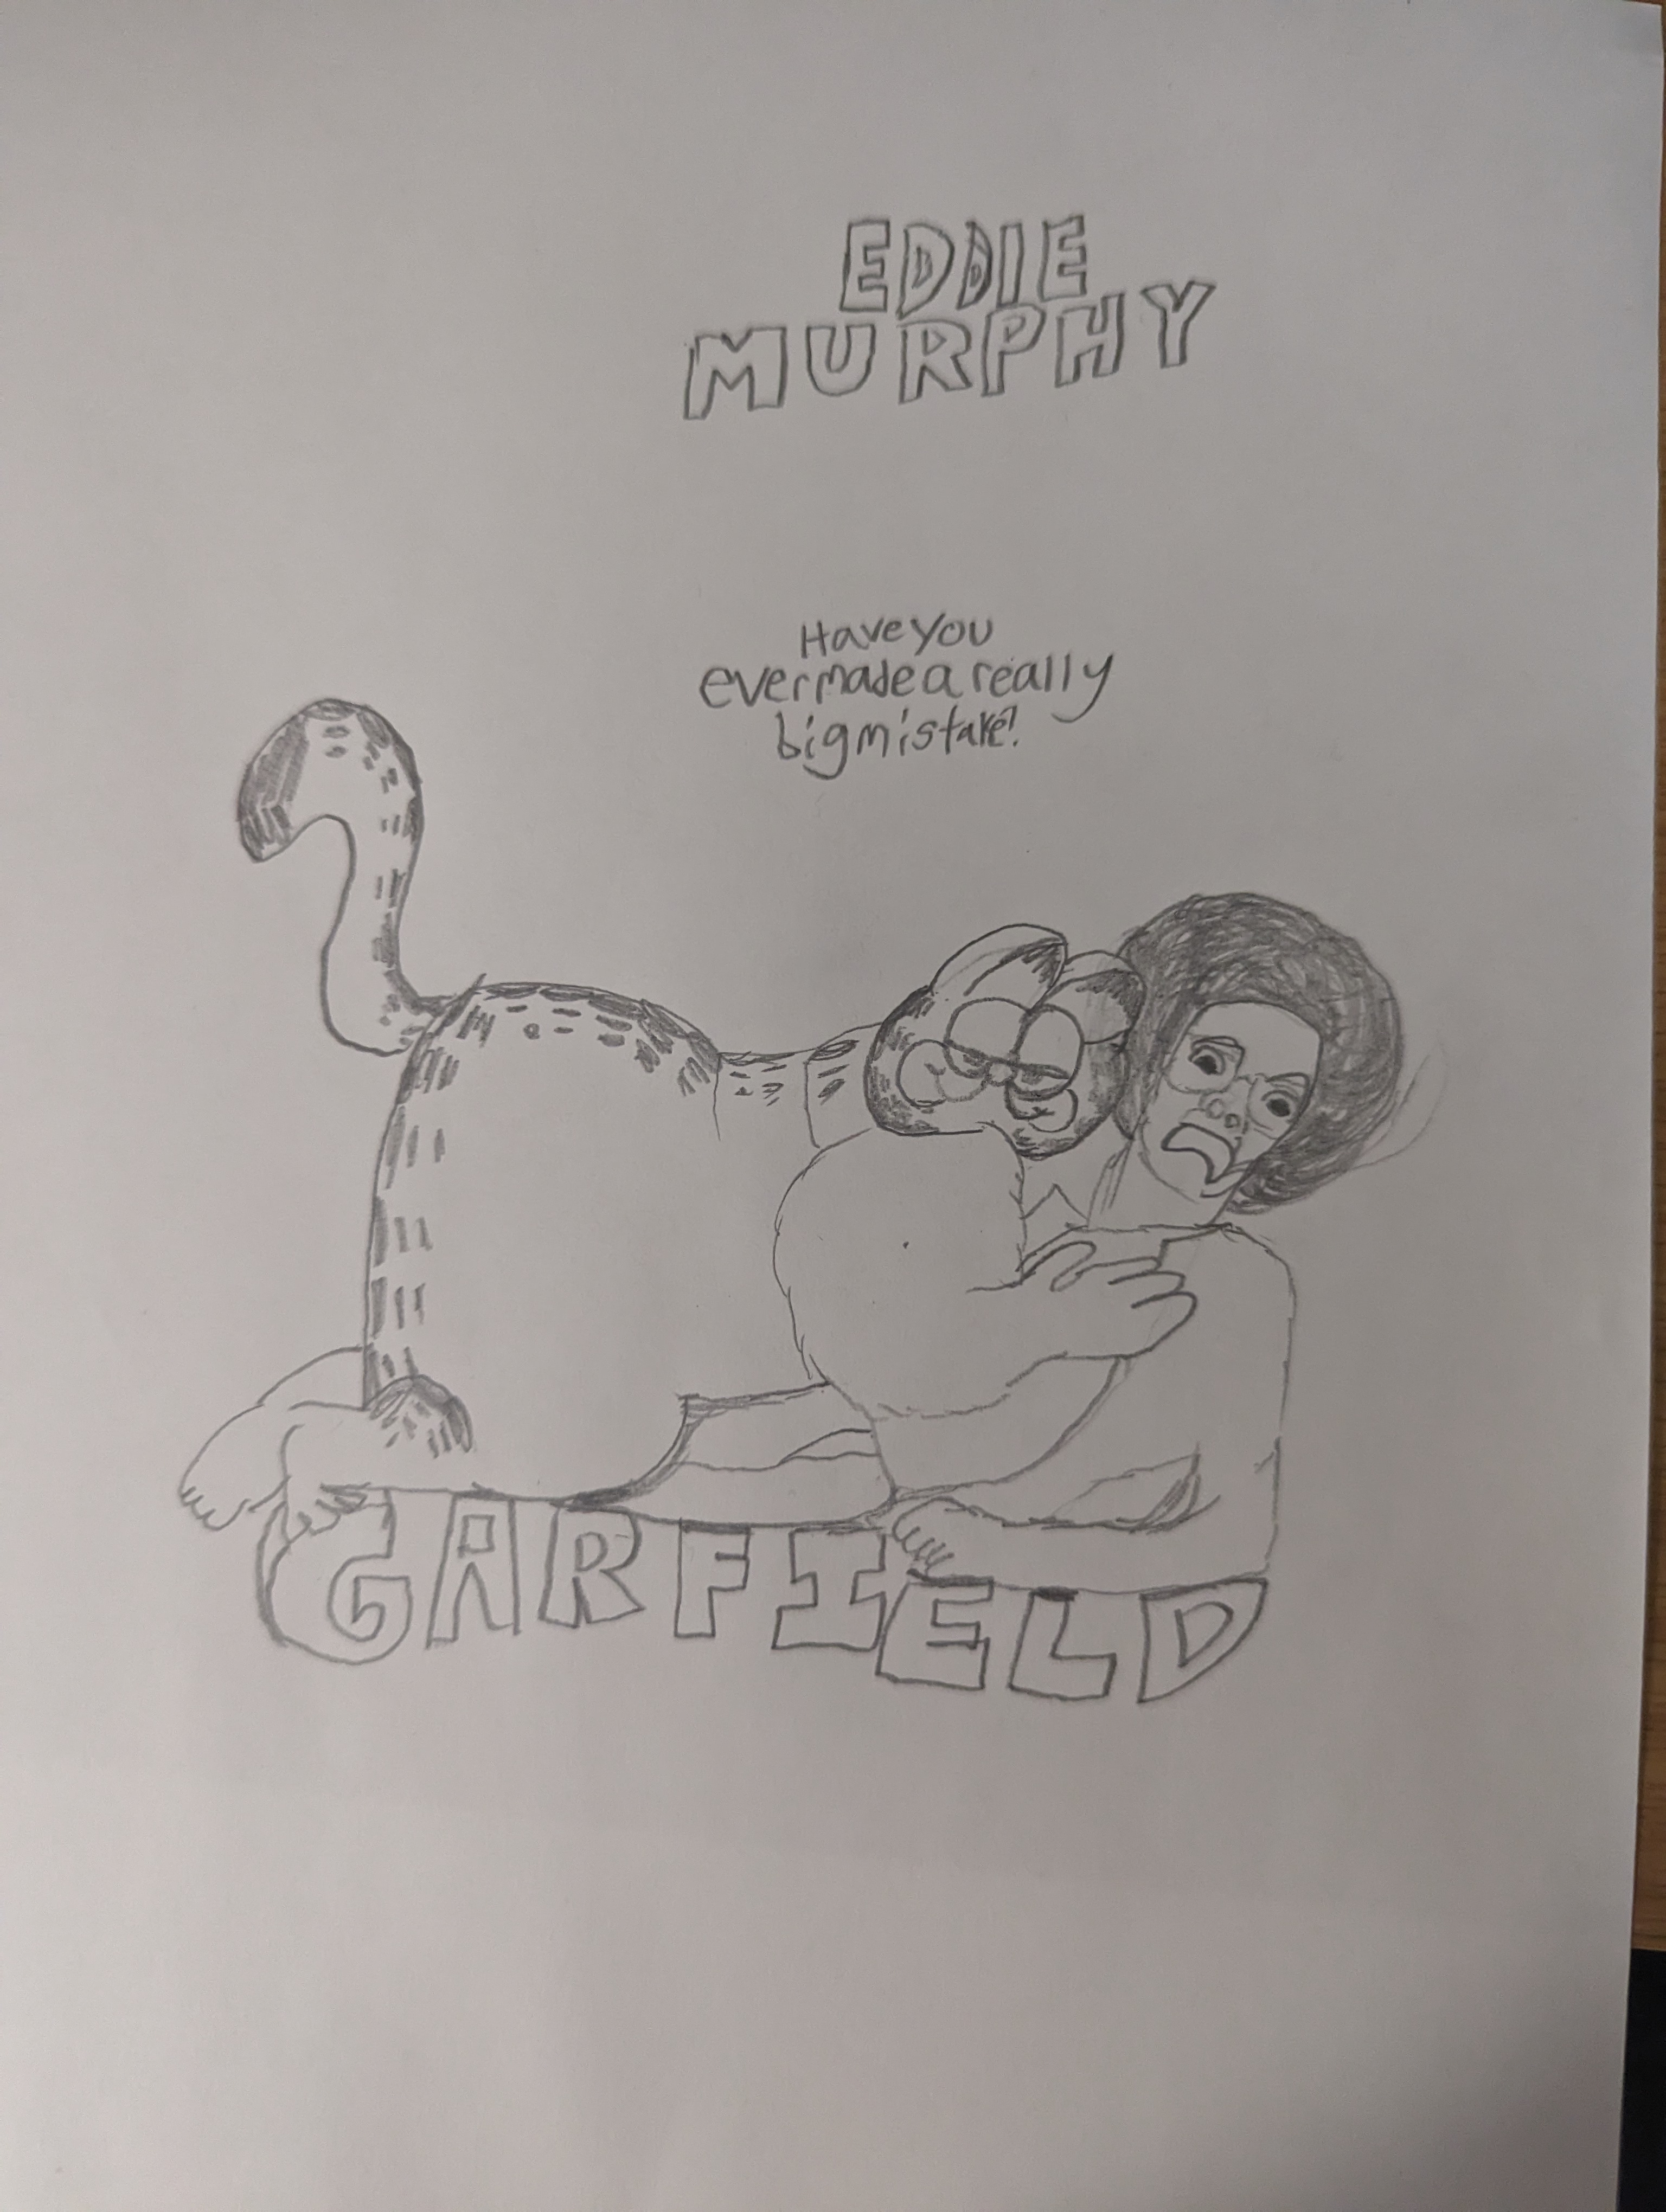 EDDIE
MURPHY
Have you
ever made a really
big mistake?
GARFIELD